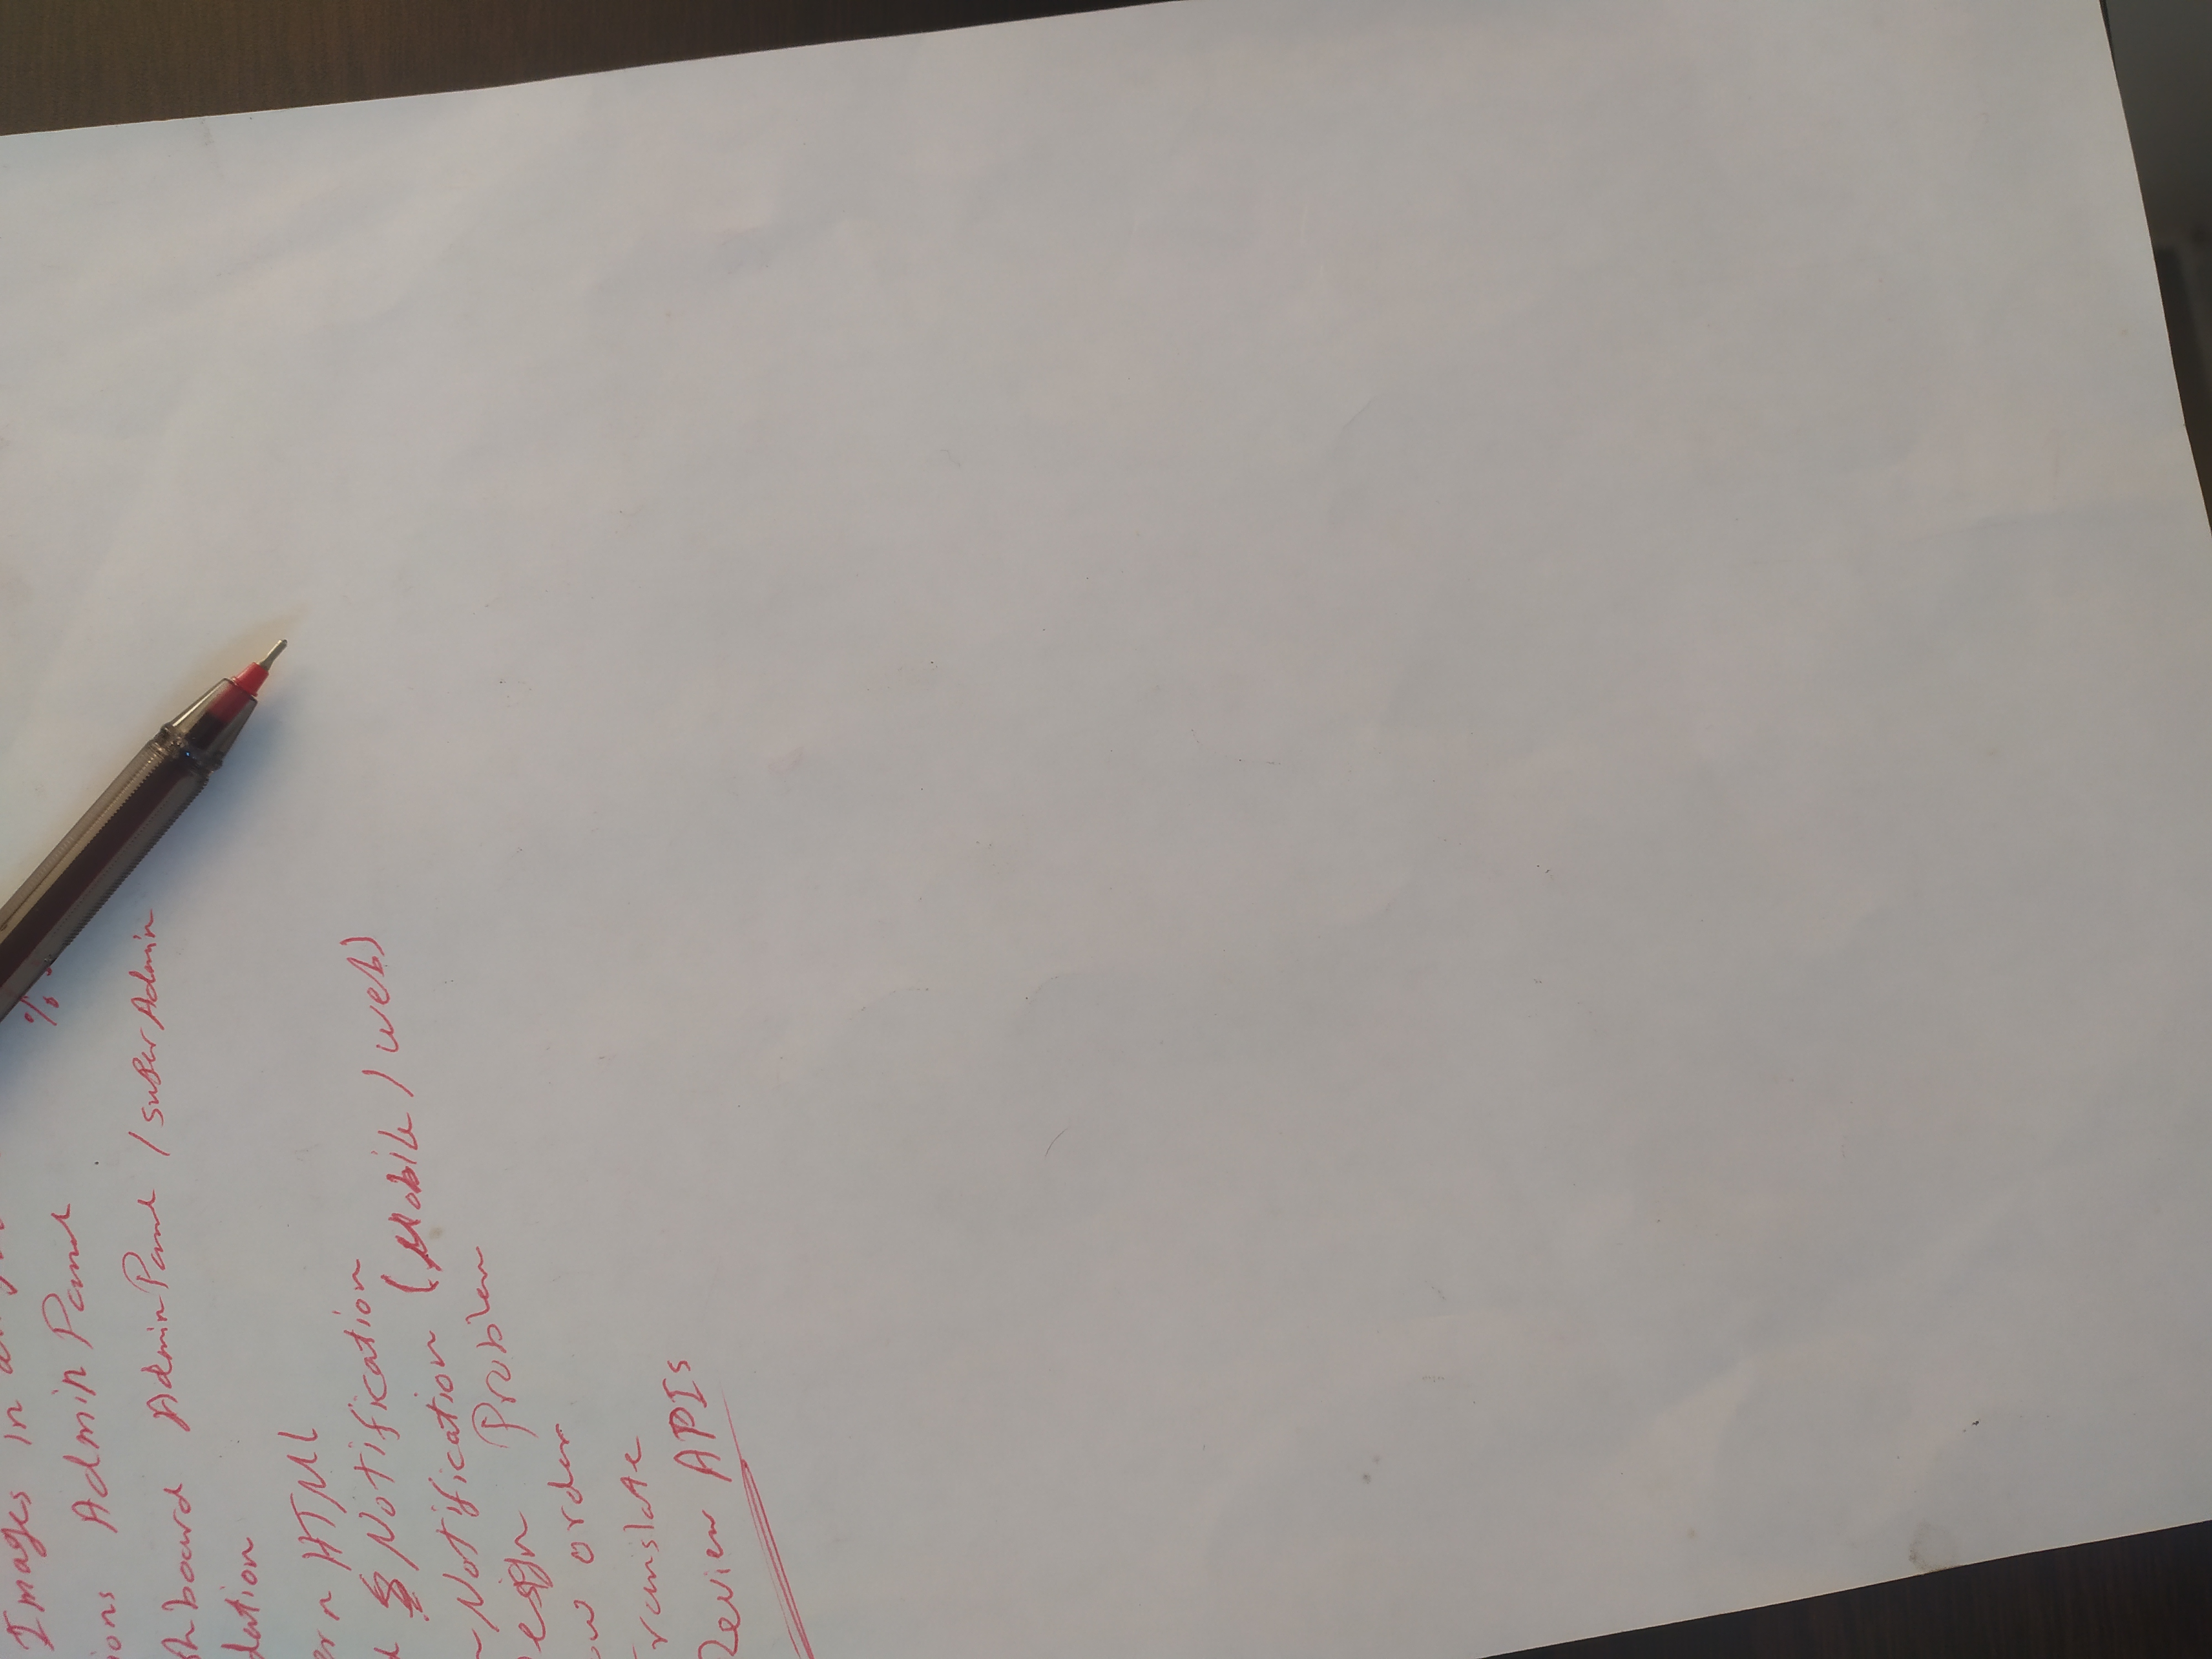 Images in
ions Admin Panel
shboard Admin Panel / super Admin
dation
ern HTML
Notification
Notification (Mobile / web)
esign Problem
ow order
ranslate
Review APIs